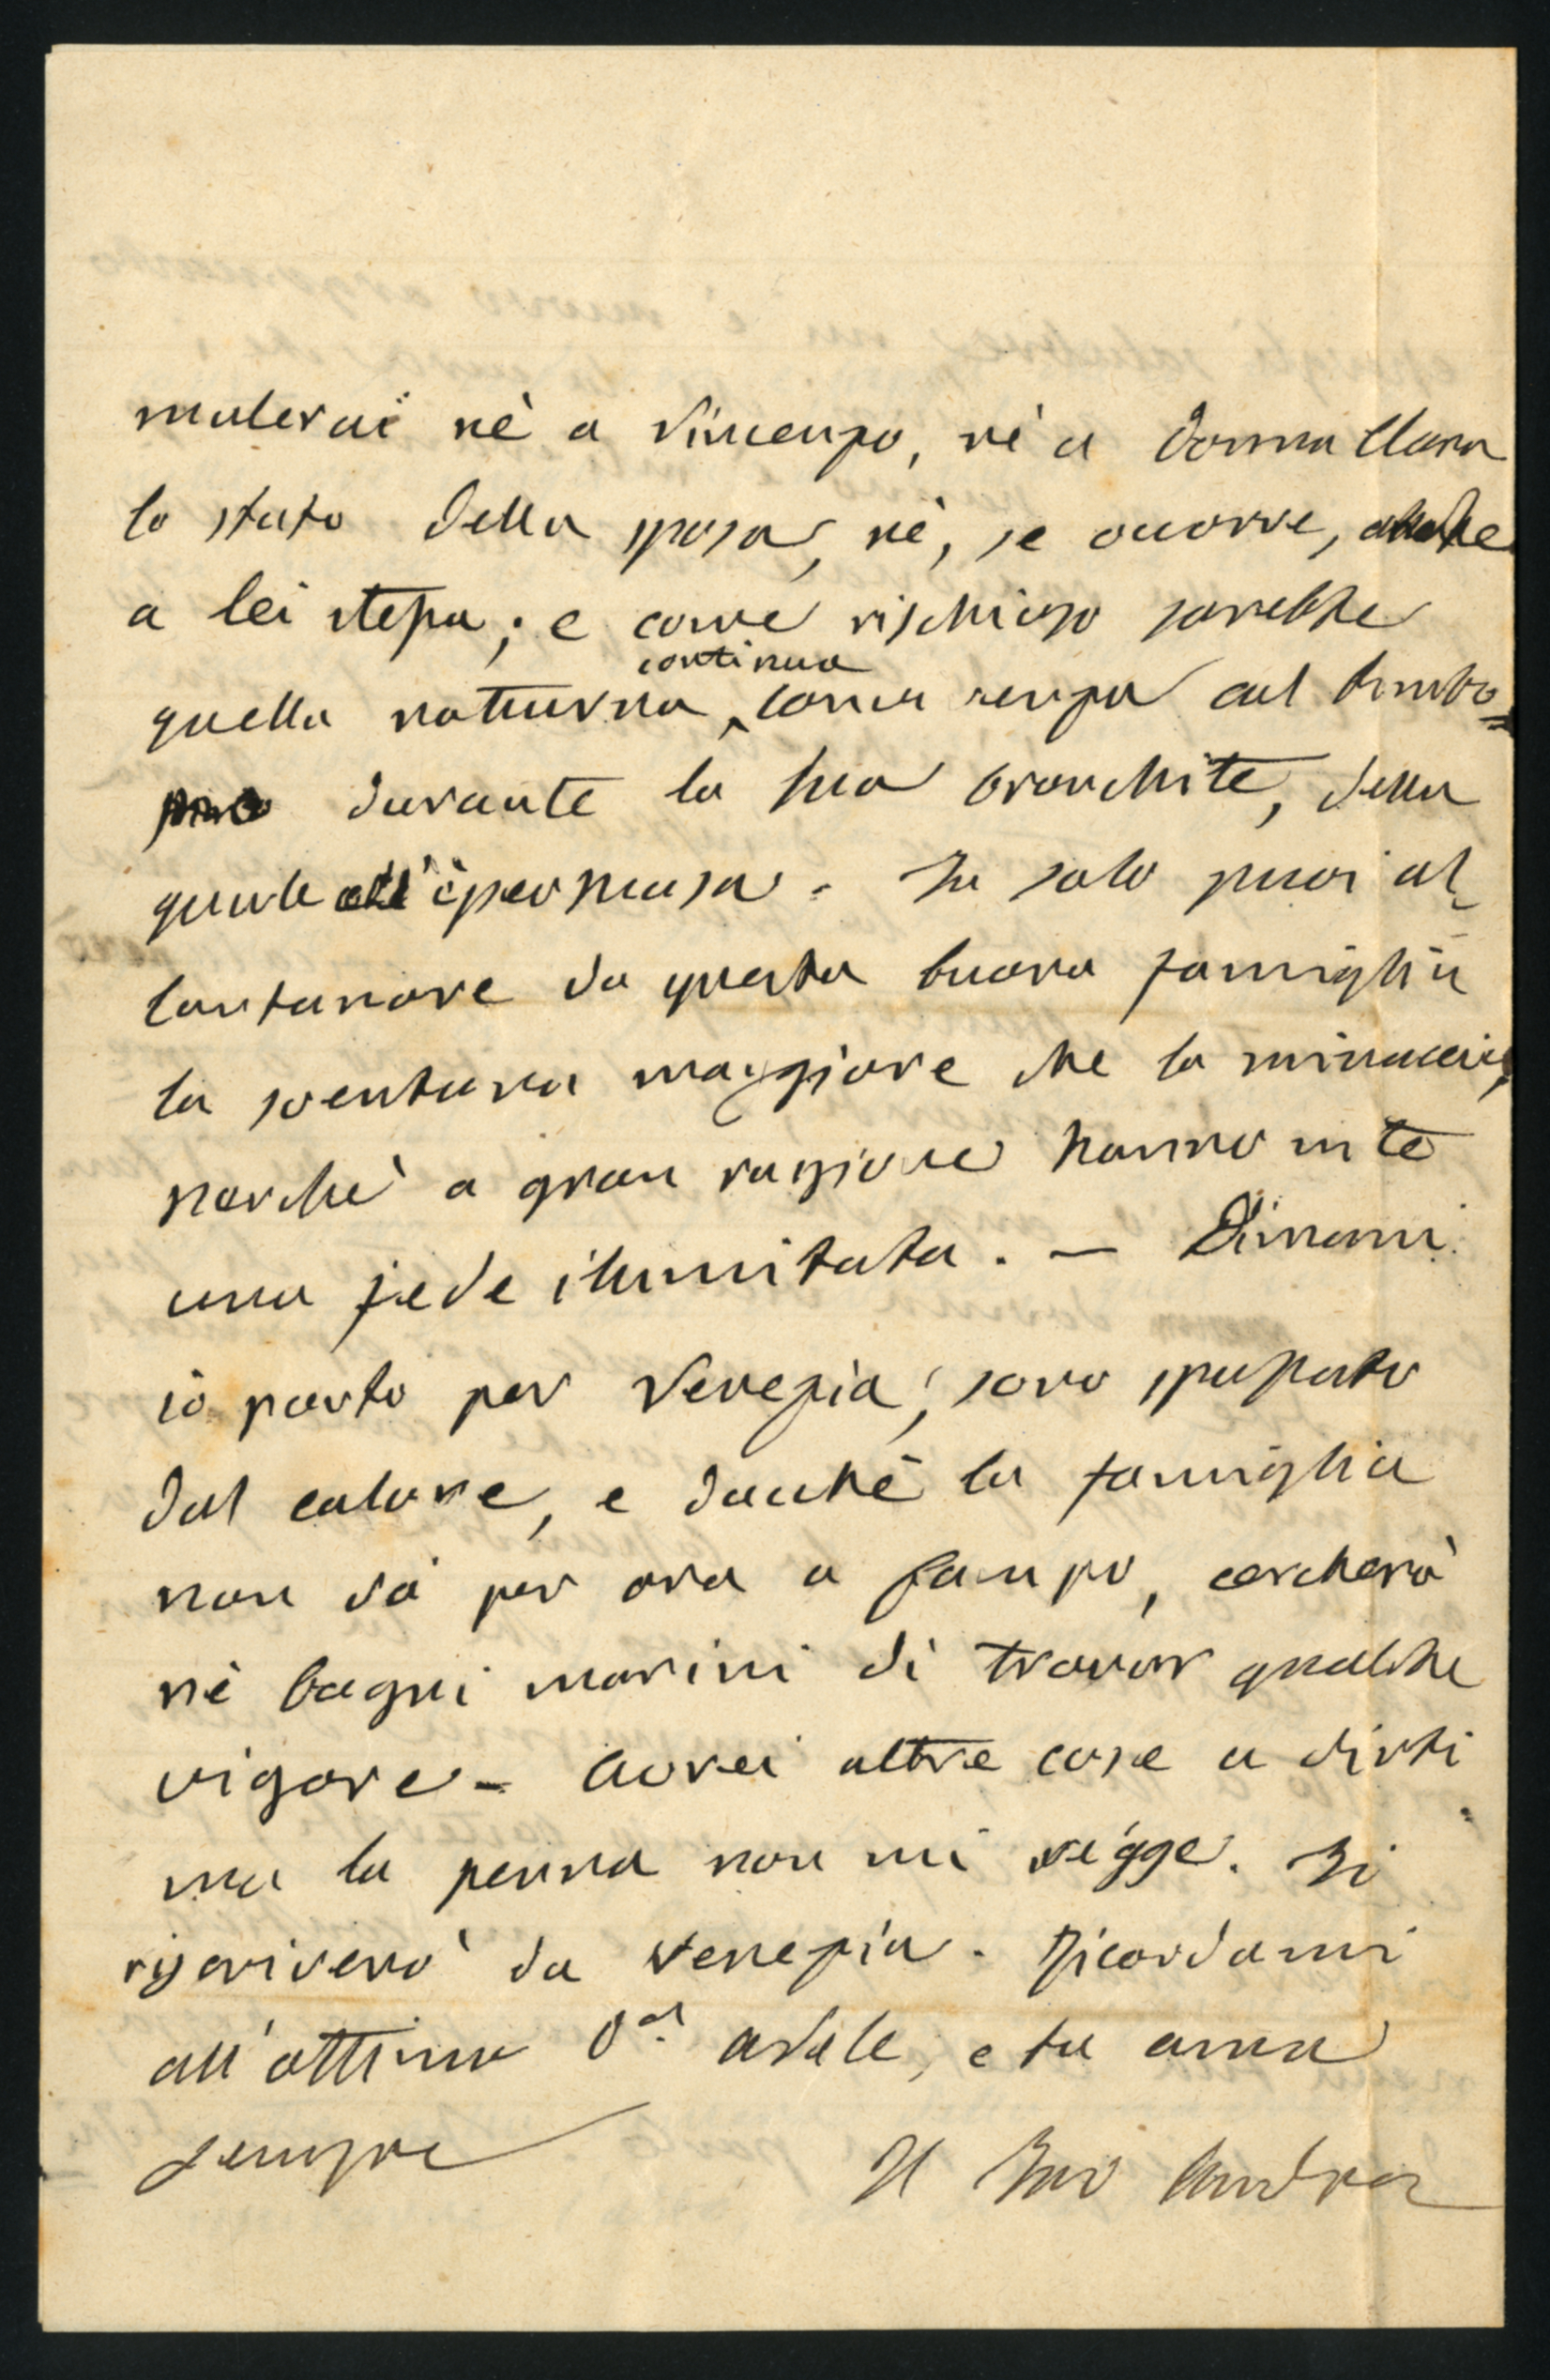 mulerai nè a Vincenzo, nè a Donna Clara
lo stato della sposa, nè, se occorre, anche
a lei stessa; e come rischioso sarebbe
continua
quella notturna, cova senza col bimbo
durante la sua bronchite, della
quale è permusa. Tu solo puoi al=
lontanare da questa buona famiglia
la sventura maggiore che la minaccia,
perchè a gran ragione hanno in te
una fede illimitata. — Dimani
io parto per Venezia; sono spossato
dal calore, e dacchè la famiglia
non va per ora a Campo, cercherò
nè bagni marini di trovar qualche
vigore — Avrei altre cose a dirti
ma la penna non mi regge. Ti
riscriverò da Venezia. Ricordami
all'ottima Adele, e tu ama
sempre
Il Tuo Andrea